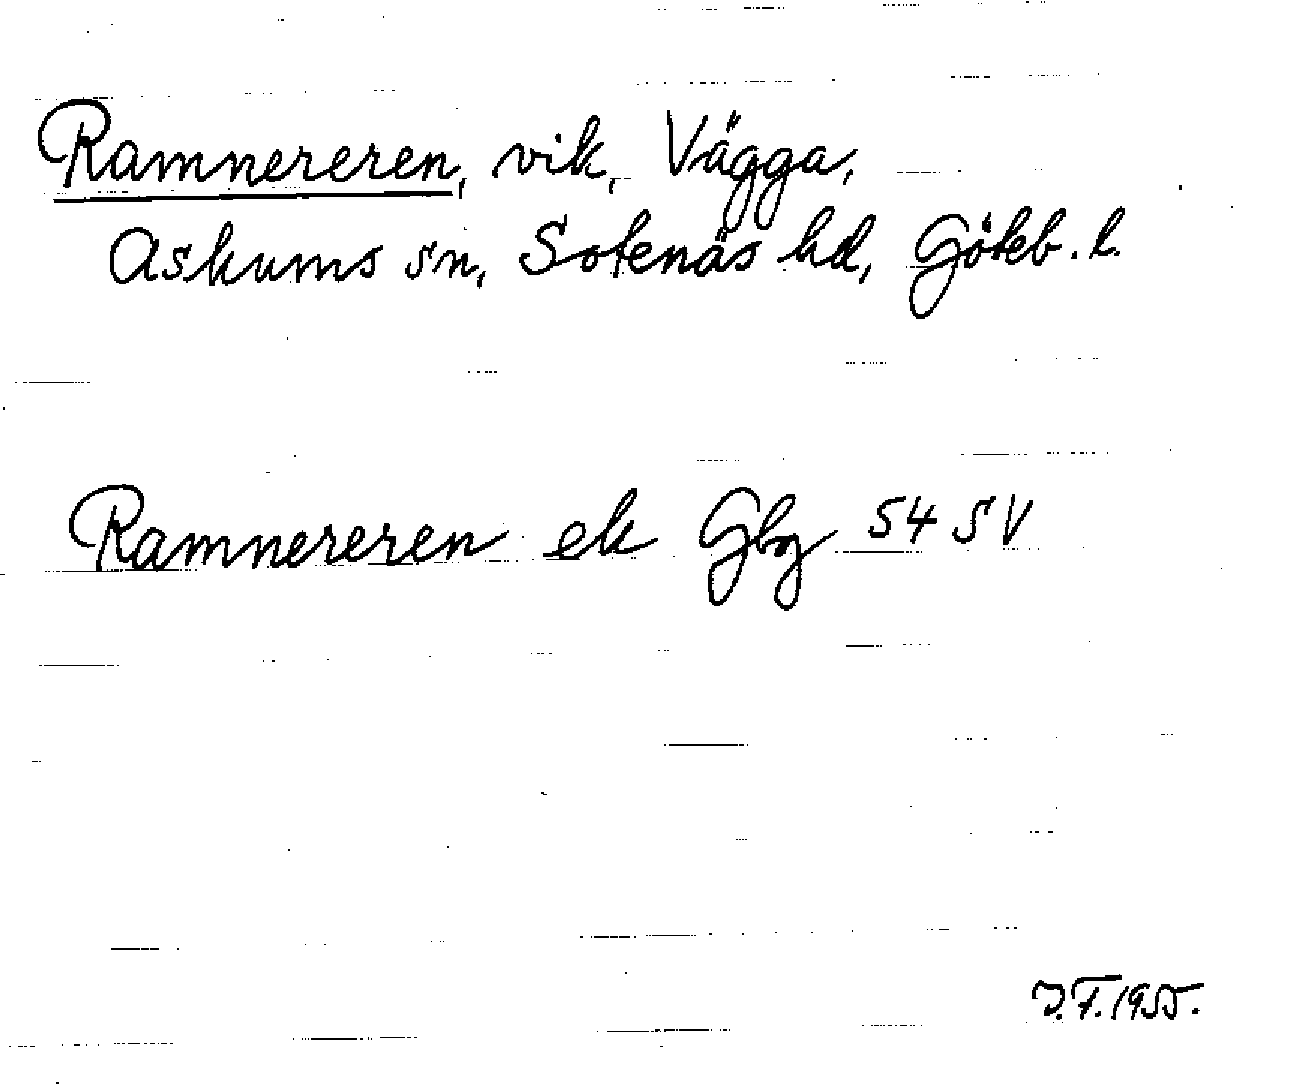 Ramnereren, vik, Vägga,
Askums sn, Sotenäs hd, Göteb. l.
Ramnereren ek Gbg 54 SV
J.F. 1955.